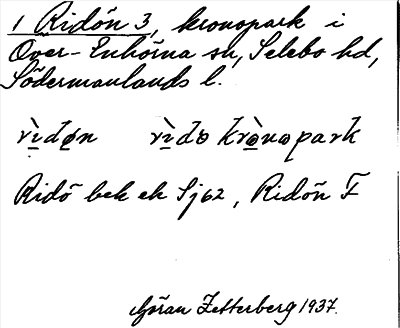 1 Ridön 3, kronopark i
Över-Enhörna sn, Selebo hd,
Södermanlands l.
rìdøn rìdo krònopark
Ridö bek ek Sj62, Ridön F
Göran Zetterberg 1937.